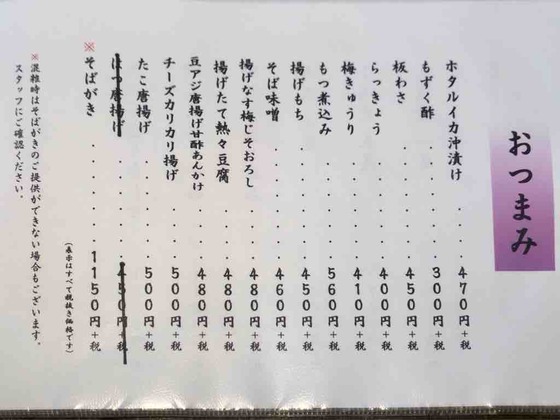 おつまみ
ホタルイカ沖漬け・・・・470円+税
もずく酢・・・・・・・300円+税
板わさ・・・・・・・・450円+税
らっきょう・・・・・・400円+税
梅きゅうり・・・・・・410円+税
もつ煮込み・・・・・・560円+税
揚げもち・・・・・・・450円+税
そば味噌・・・・・・・460円+税
揚げなす梅じそおろし・・480円+税
揚げたて熱々豆腐・・・・480円+税
豆アジ唐揚げ甘酢あんかけ・480円+税
チーズカリカリ揚げ・・・500円+税
たこ唐揚げ・・・・・・500円+税
はつ唐揚げ・・・・・・450円+税
※そばがき・・・・・・1150円+税
(表示はすべて税抜き価格です)
※混雑時はそばがきのご提供ができない場合もございます。
スタッフにご確認ください。